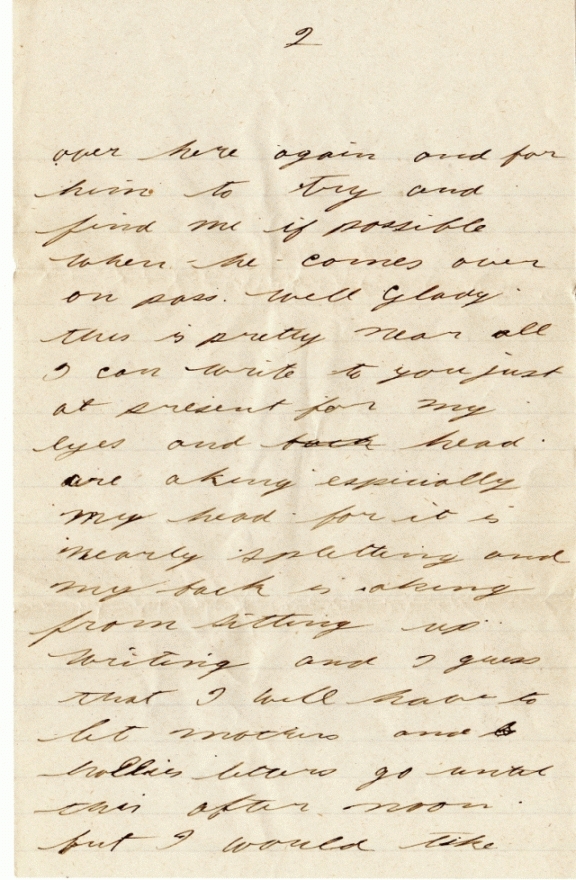 2
over here again and for
him to try and
find me if possible
when - he - comes over
on pass. Well Glady
this is pretty near all
I can write to you just
at present for my
eyes and back head
are aking especially
my head for it is
nearly splitting and
my back is aking
from sitting up
writing and I guess
that I will have to
let mothers and
Mollies letters go until
this after noon.
but I would like